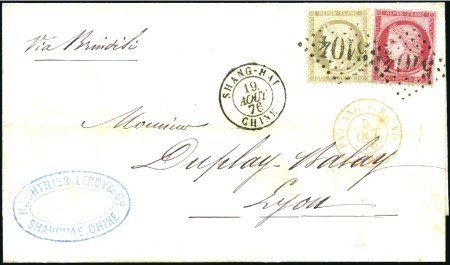 Via Brindisi
REPUB. FRANC.
REPUB. FRANC.
5104
5104
SHANG-HAI
19
AOUT
76
CHINE
5
OCT
76
Monsieur
Duplay-Balay
Lyon
LEROY & Co
SHANGHAE. CHINE